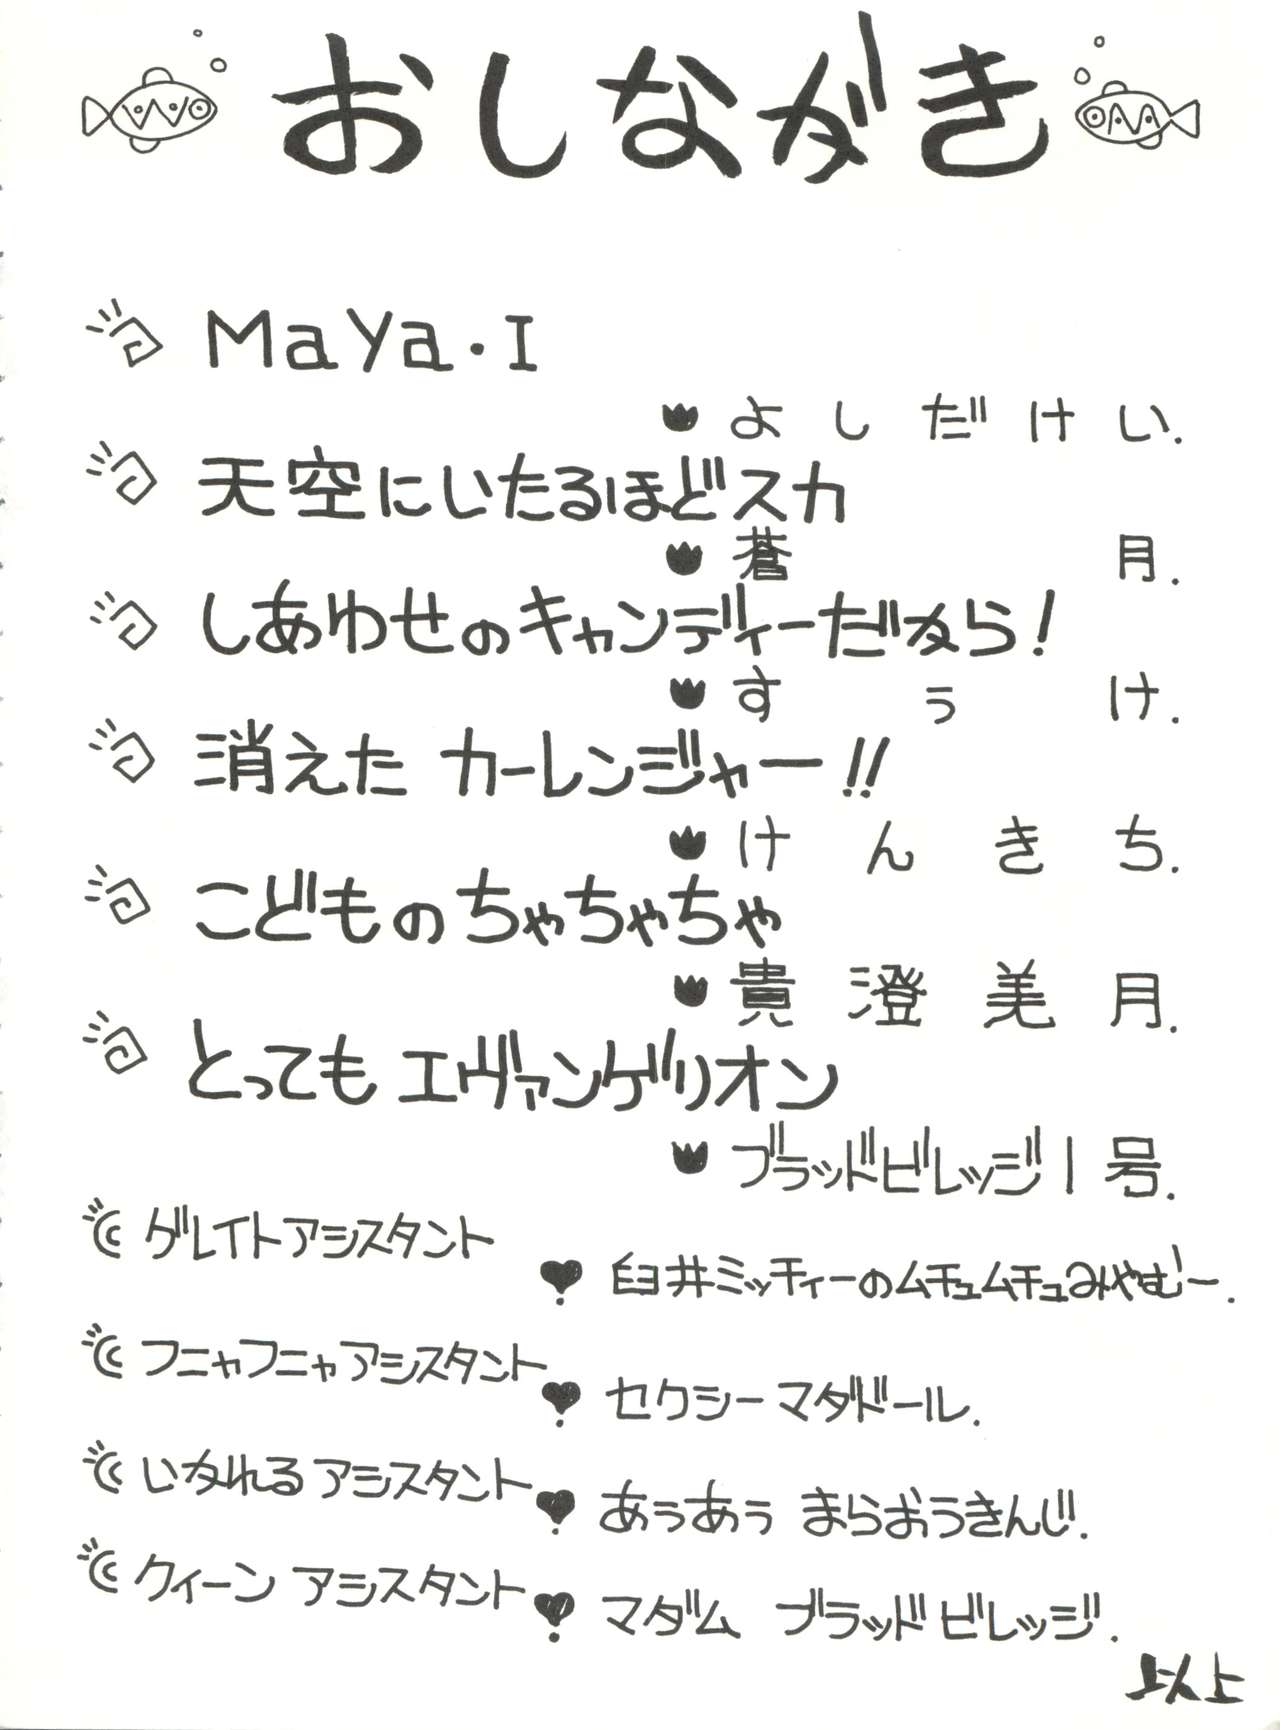 おしながき
MaYa・I
よしだけい.
天空にいたるほどスカ
蒼月.
しあわせのキャンディーだなら!
すぅけ.
消えた カーレンジャー!!
けんきち.
こどものちゃちゃちゃ
貴澄美月.
とっても エヴァンゲリオン
ブラッドビレッジ1号.
グレイトアシスタント
臼井ミッティーのムチュムチュみやむー.
フニャフニャアシスタント
セクシーマタドール.
いなれる アシスタント
あぅあぅ まらおうきんじ.
クィーン アシスタント
マダム ブラッドビレッジ.
以上